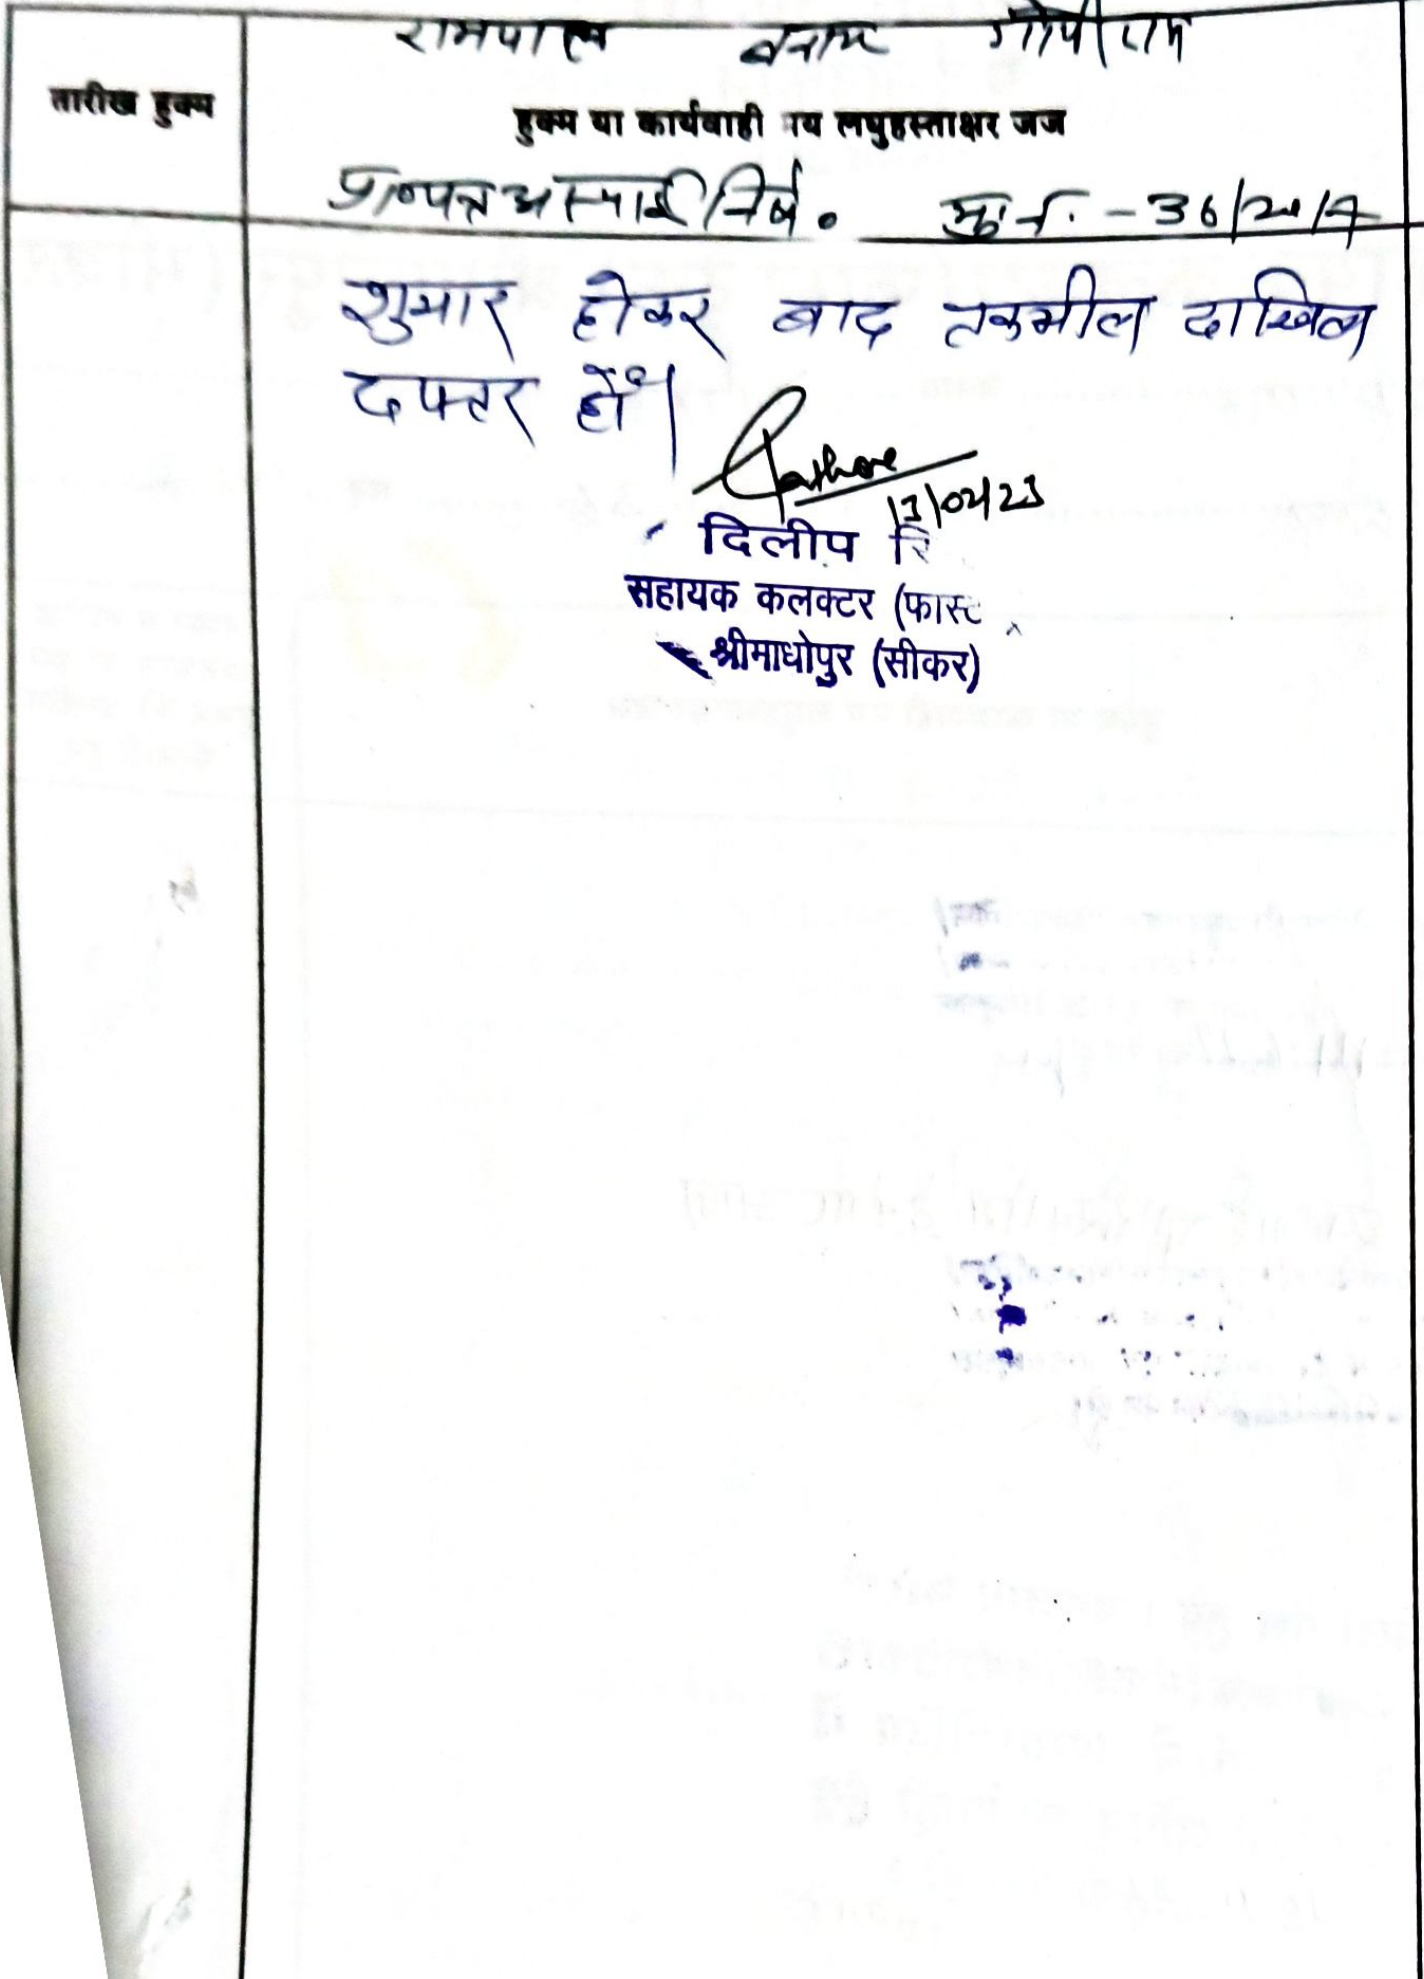 रामपाल बनाम गोपीराम
तारीख हुक्म
हुक्म या कार्यवाही मय लघुहस्ताक्षर जज
प्रा०पत्र अस्थाई निषे० मु.नं. - 36/2017
शुमार होकर बाद तकमील दाखिल
दफ्तर हों।
13/02/23
दिलीप
सहायक कलक्टर (फास्ट
श्रीमाधोपुर (सीकर)